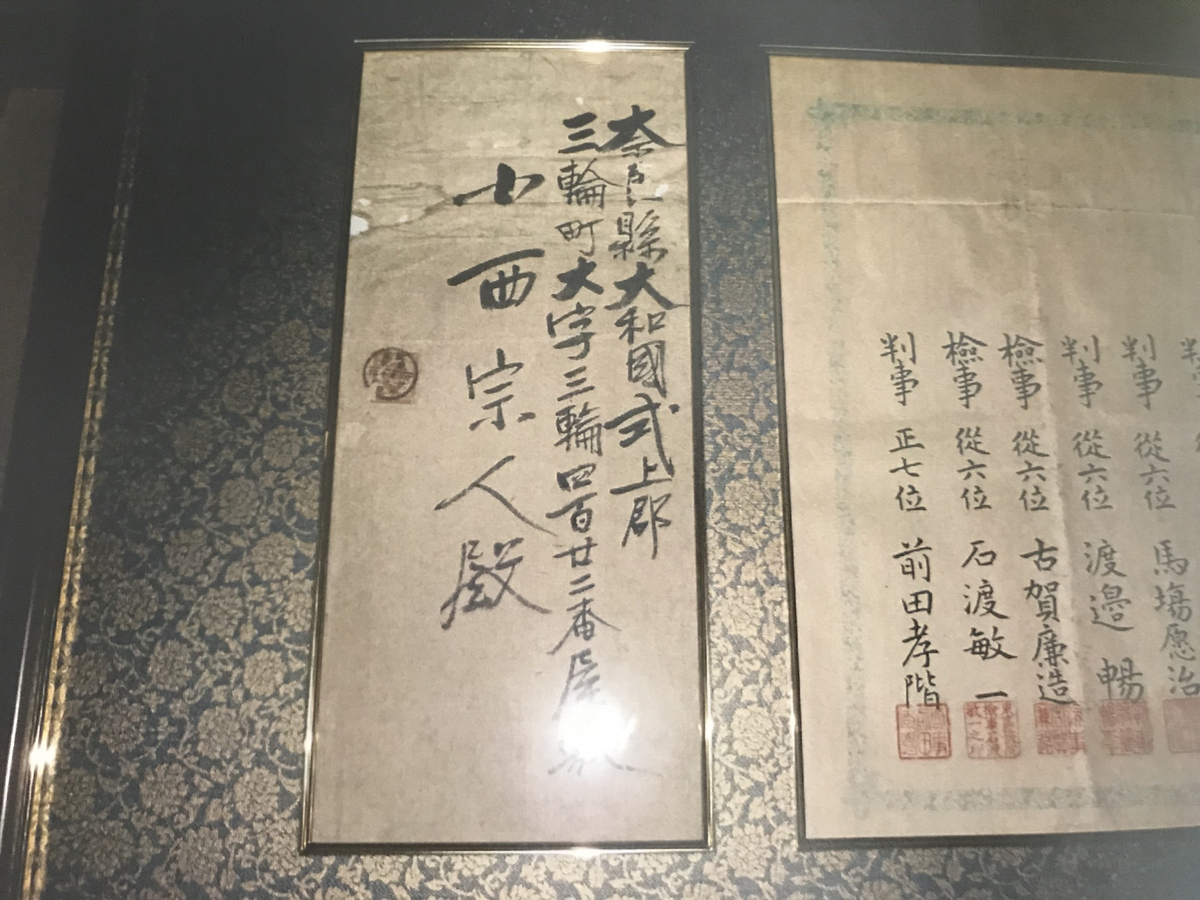 奈良縣大和國式上郡
三輪町大字三輪四百廿二番屋敷
小西宗人殿
判事 從六位 馬塲愿治
判事 從六位 渡邉 暢
檢事 從六位 古賀廉造
檢事 從六位 石渡敏一
判事 正七位 前田孝階